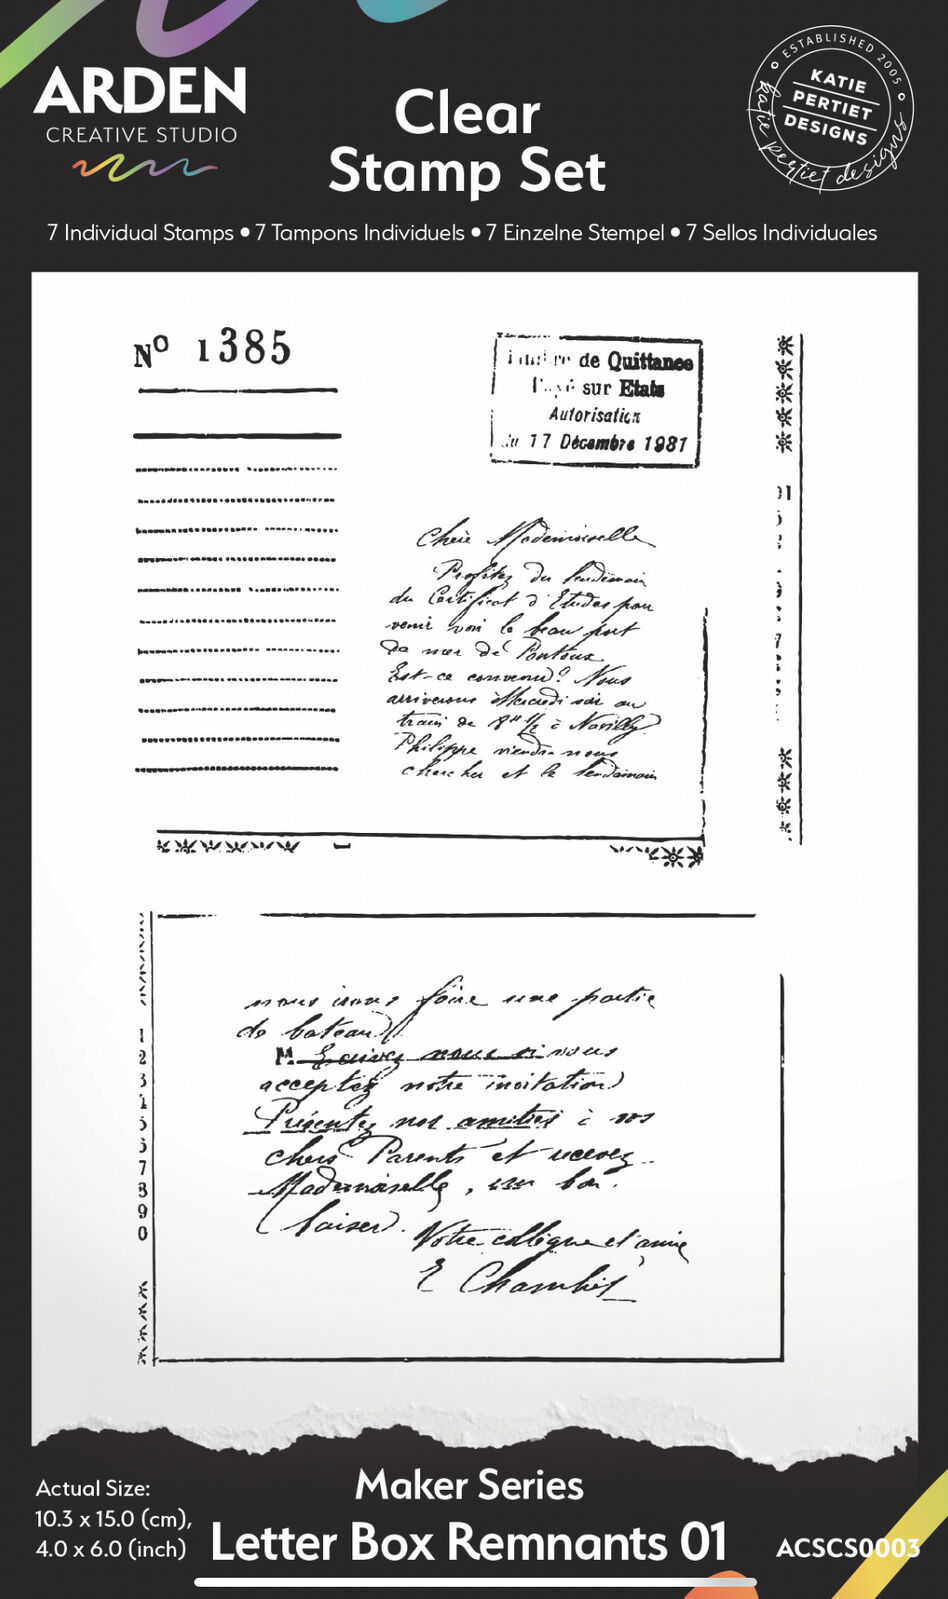 ARDEN
CREATIVE STUDIO
Clear
Stamp Set
ESTABLISHED 2005
KATIE
PERTIET
DESIGNS
katie pertiet designs
7 Individual Stamps • 7 Tampons Individuels • 7 Einzelne Stempel • 7 Sellos Individuales
Nº 1385
de Quittance
sur Etats
Autorisation
du 17 Décembre 1981
Chère Mademoiselle
Profitez du lendemain
du Certificat d'Etudes pour
venir voir le beau port
de mer de
Est-ce convenu? Nous
arriverons Mercredi soir au
train de 8h 1/2 à Noailly
Philippe viendra nous
chercher et le lendemain
nous irons faire une partie
de bateau
M. Ecrivez nous si vous
acceptez notre invitation
Présentez nos amitiés à vos
chers Parents et recevez
Mademoiselle, un bon
baiser.
Votre collègue et amie
E Chamb
1
2
3
5
7
8
9
0
Actual Size:
10.3 x 15.0 (cm),
4.0 x 6.0 (inch)
Maker Series
Letter Box Remnants 01
ACSCS0003